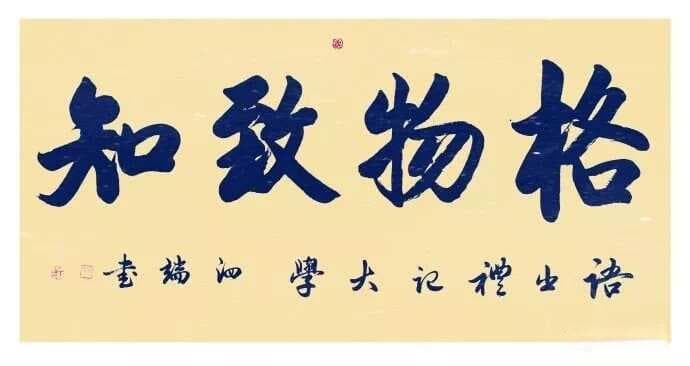 格物致知
语出礼记大學 泗端书